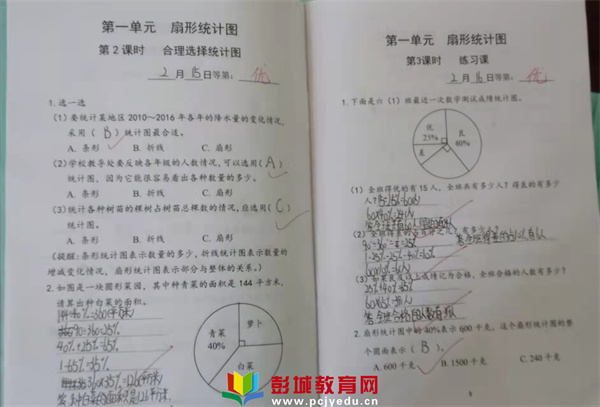 第一单元 扇形统计图
第2课时 合理选择统计图
2月15日等第：优
1. 选一选
(1)要统计某地区2010～2016年各年的降水量的变化情况，
采用（B）统计图最合适。
A. 条形 B. 折线 C. 扇形
(2)学校教导处要反映各年级的人数情况，可以选用（A）
统计图，因为它能很容易看出各种数量的多少。
A. 条形 B. 折线 C. 扇形
(3)统计各种树苗的棵树占树苗总棵数的情况，应选用（C）
统计图。
A. 条形 B. 折线 C. 扇形
(提醒：条形统计图表示数量的多少，折线统计图表示数量的
增减变化情况，扇形统计图表示部分与整体的关系。)
2. 如图是一块圆形菜园，其中种青菜的面积是144平方米，
请算出种白菜的面积。
144÷40%=360(平方米)
90÷360=25%
40%+25%=65%
1-65%=35%
360×35%=126(平方米)
答：种白菜的面积是126平方米
青菜
40%
萝卜
白菜
第一单元 扇形统计图
第3课时 练习课
2月16日等第：优
1. 下面是六（1）班最近一次数学测试成绩统计图。
优
25%
良
40%
差
(1) 全班得优的有15人，全班共有多少人？得良的有多少
人？15÷25%=60(人)
60×40%=24(人)
(3)如果良及以上成绩记为合格，全班合格的人数有多少？
25%+40%=65%
2. 扇形统计图中的40%表示600千克，这个扇形统计图的整
个圆面表示（B）。
A. 600千克 B. 1500千克 C. 240千克
彭城教育网
www.pcjyedu.cn